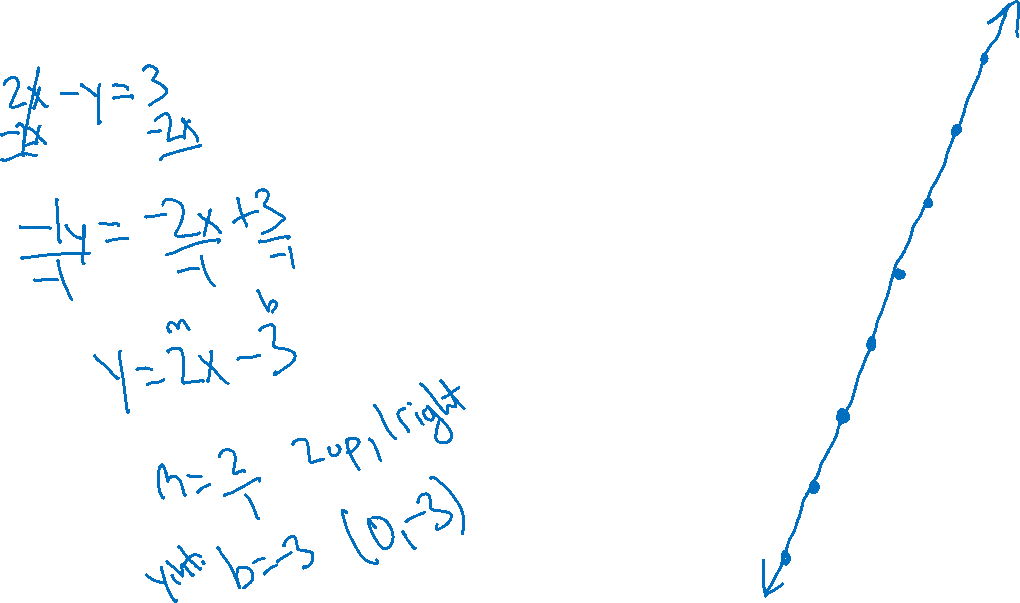 2x - y = 3
-2x -2x
-1y = -2x + 3
-1 -1 -1
m b
y = 2x - 3
m = 2/1 2up, 1right
yint. b = -3 (0, -3)